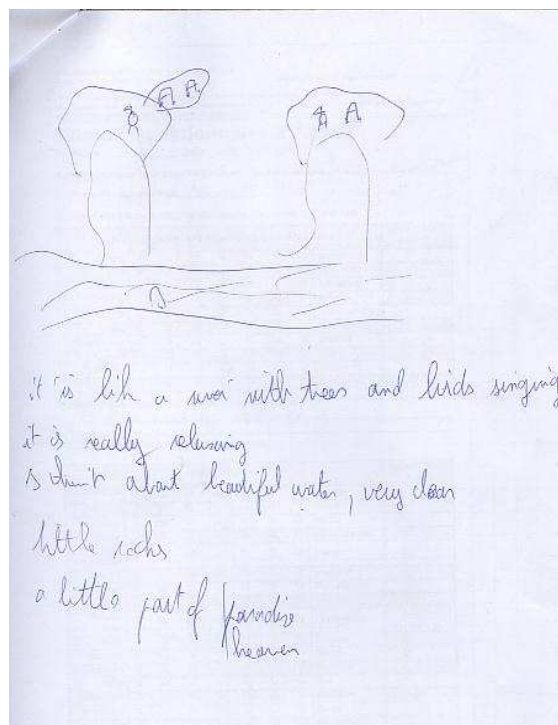 it is like a river with trees and birds singing
it is really relaxing
I about beautiful water, very clean
little rocks
a little part of paradise
heaven